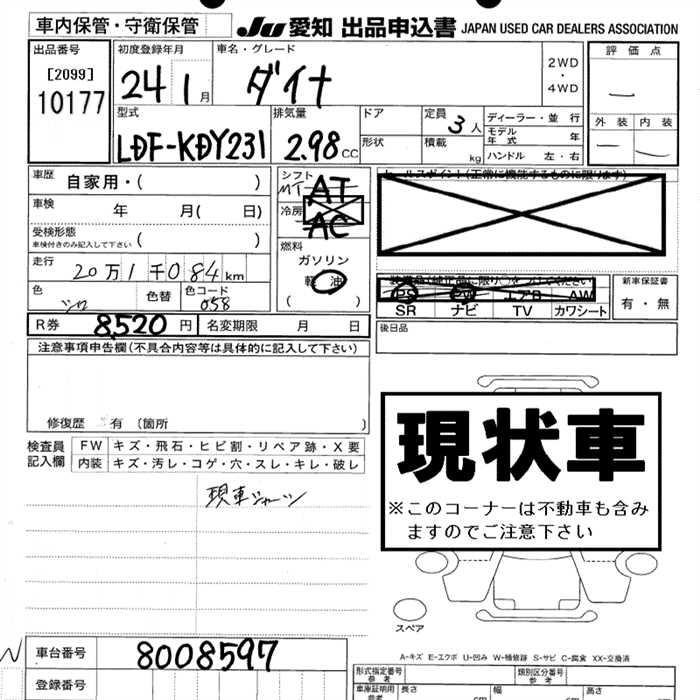 車内保管・守衛保管
JU 愛知 出品申込書 JAPAN USED CAR DEALERS ASSOCIATION
出品番号
[2099]
10177
初度登録年月
24 1月
車名・グレード
ダイナ
2WD
・
4WD
評価点
外装 内装
型式
LDF-KDY231
排気量
2.98 CC
ドア
形状
定員
3人
積載
kg
ディーラー・並行
モデル年式 年
ハンドル 左・右
車歴
自家用・( )
車検 年 月( 日)
受検形態
車検付きのみ記入して下さい ( )
走行
20万1千084km
色
シロ
色替
色コード
058
シフト
MT AT
冷房
AC
燃料
ガソリン
軽油
( )
セールスポイント(正常に機能するものに限ります)
PS PW エアB AW
SR ナビ TV カワシート
新車保証書
有・無
R券 8,520円 名変期限 月 日
後日品
注意事項申告欄(不具合内容等は具体的に記入して下さい)
修復歴 有 (箇所 )
検査員記入欄
FW キズ・飛石・ヒビ割・リペア跡・X要
内装 キズ・汚レ・コゲ・穴・スレ・キレ・破レ
現車シャーシ
現状車
※このコーナーは不動車も含み
ますのでご注意下さい
スペア
A-キズ E-エクボ U-凹み W-補修跡 S-サビ C-腐食 XX-交換済
車台番号 8008597
登録番号
形式指定番号
参考
類別区分番号
参考
車庫証明用
参考
長さ
幅
高さ